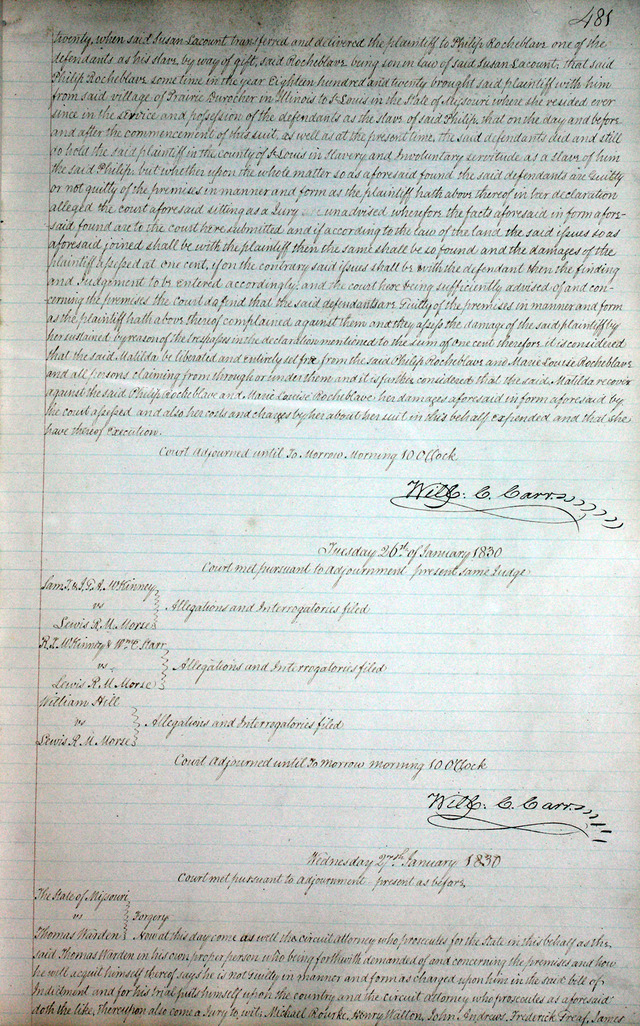 481
twenty, when said Susan Lacount transferred and delivered the plaintiff to Philip Rocheblave one of the
defendants as his slave by way of gift, said Rocheblave being son in law of said Susan Lacount, that said
Philip Rocheblave some time in the year Eighteen hundred and twenty brought said plaintiff with him
from said village of Prairie Durocher in Illinois to St Louis in the State of Missouri where she resided ever
since in the service and possession of the defendants as the slave of said Philip, that on the day and before
and after the commencement of this suit, as well as at the present time, the said defendants did and still
do hold the said plaintiff in the county of St Louis in Slavery and Involuntary servitude as a slave of him
the said Philip. but whether upon the whole matter so as aforesaid found the said defendants are Guilty
or not guilty of the premises in manner and form as the plaintiff hath above thereof in her declaration
alleged the court aforesaid sitting as a Jury unadvised wherefore the facts aforesaid in form afore-
said found are to the court here submitted and if according to the law of the land the said issues so as
aforesaid joined shall be with the plaintiff then the same shall be so found and the damages of the
plaintiff assessed at one cent, if on the contrary said issues shall be with the defendant then the finding
and Judgement to be entered accordingly, and the court here being sufficiently advised of and con-
cerning the premises the court do find that the said defendants are Guilty of the premises in manner and form
as the plaintiff hath above thereof complained against them and they assess the damage of the said plaintiff by
her sustained by reason of the trespass in the declaration mentioned to the sum of one cent therefore it is considered
that the said Matilda be liberated and entirely set free from the said Philip Rocheblave and Marie Louise Rocheblave
and all persons claiming from through or under them and it is further considered that the said Matilda recover
against the said Philip Rocheblave and Marie Louise Rocheblave her damages aforesaid in form aforesaid by
the court assessed and also her costs and charges by her about her suit in this behalf expended and that she
have thereof execution.
Court Adjourned until To Morrow Morning 10 OClock
Will: C. Carr
Tuesday 26th of January 1830
Court met pursuant to Adjournment present same Judge
Saml & J. G. A. McKinney
vs
Lewis R. M. Morse
Allegations and Interrogatories filed
R. I. McKinney & Wm C Starr
vs
Lewis R. M. Morse
Allegations and Interrogatories filed
William Hill
vs
Lewis R. M. Morse
Allegations and Interrogatories filed
Court Adjourned until To morrow morning 10 OClock
Will: C. Carr
Wednesday 27th January 1830
Court met pursuant to adjournment present as before
The State of Missouri
vs
Forgery
Thomas Warden Now at this day come as well the circuit attorney who prosecutes for the State in this behalf as the
said Thomas Warden in his own proper person who being forthwith demanded of and concerning the premises and how
he will acquit himself thereof says he is not guilty in manner and form as charged upon him in the said bill of
Indictment and for his trial puts himself upon the country and the circuit attorney who prosecutes as aforesaid
doth the like, Thereupon also come a Jury to wit, Michael Rourke, Henry Walton, John Andrews, Frederick Freaf, James